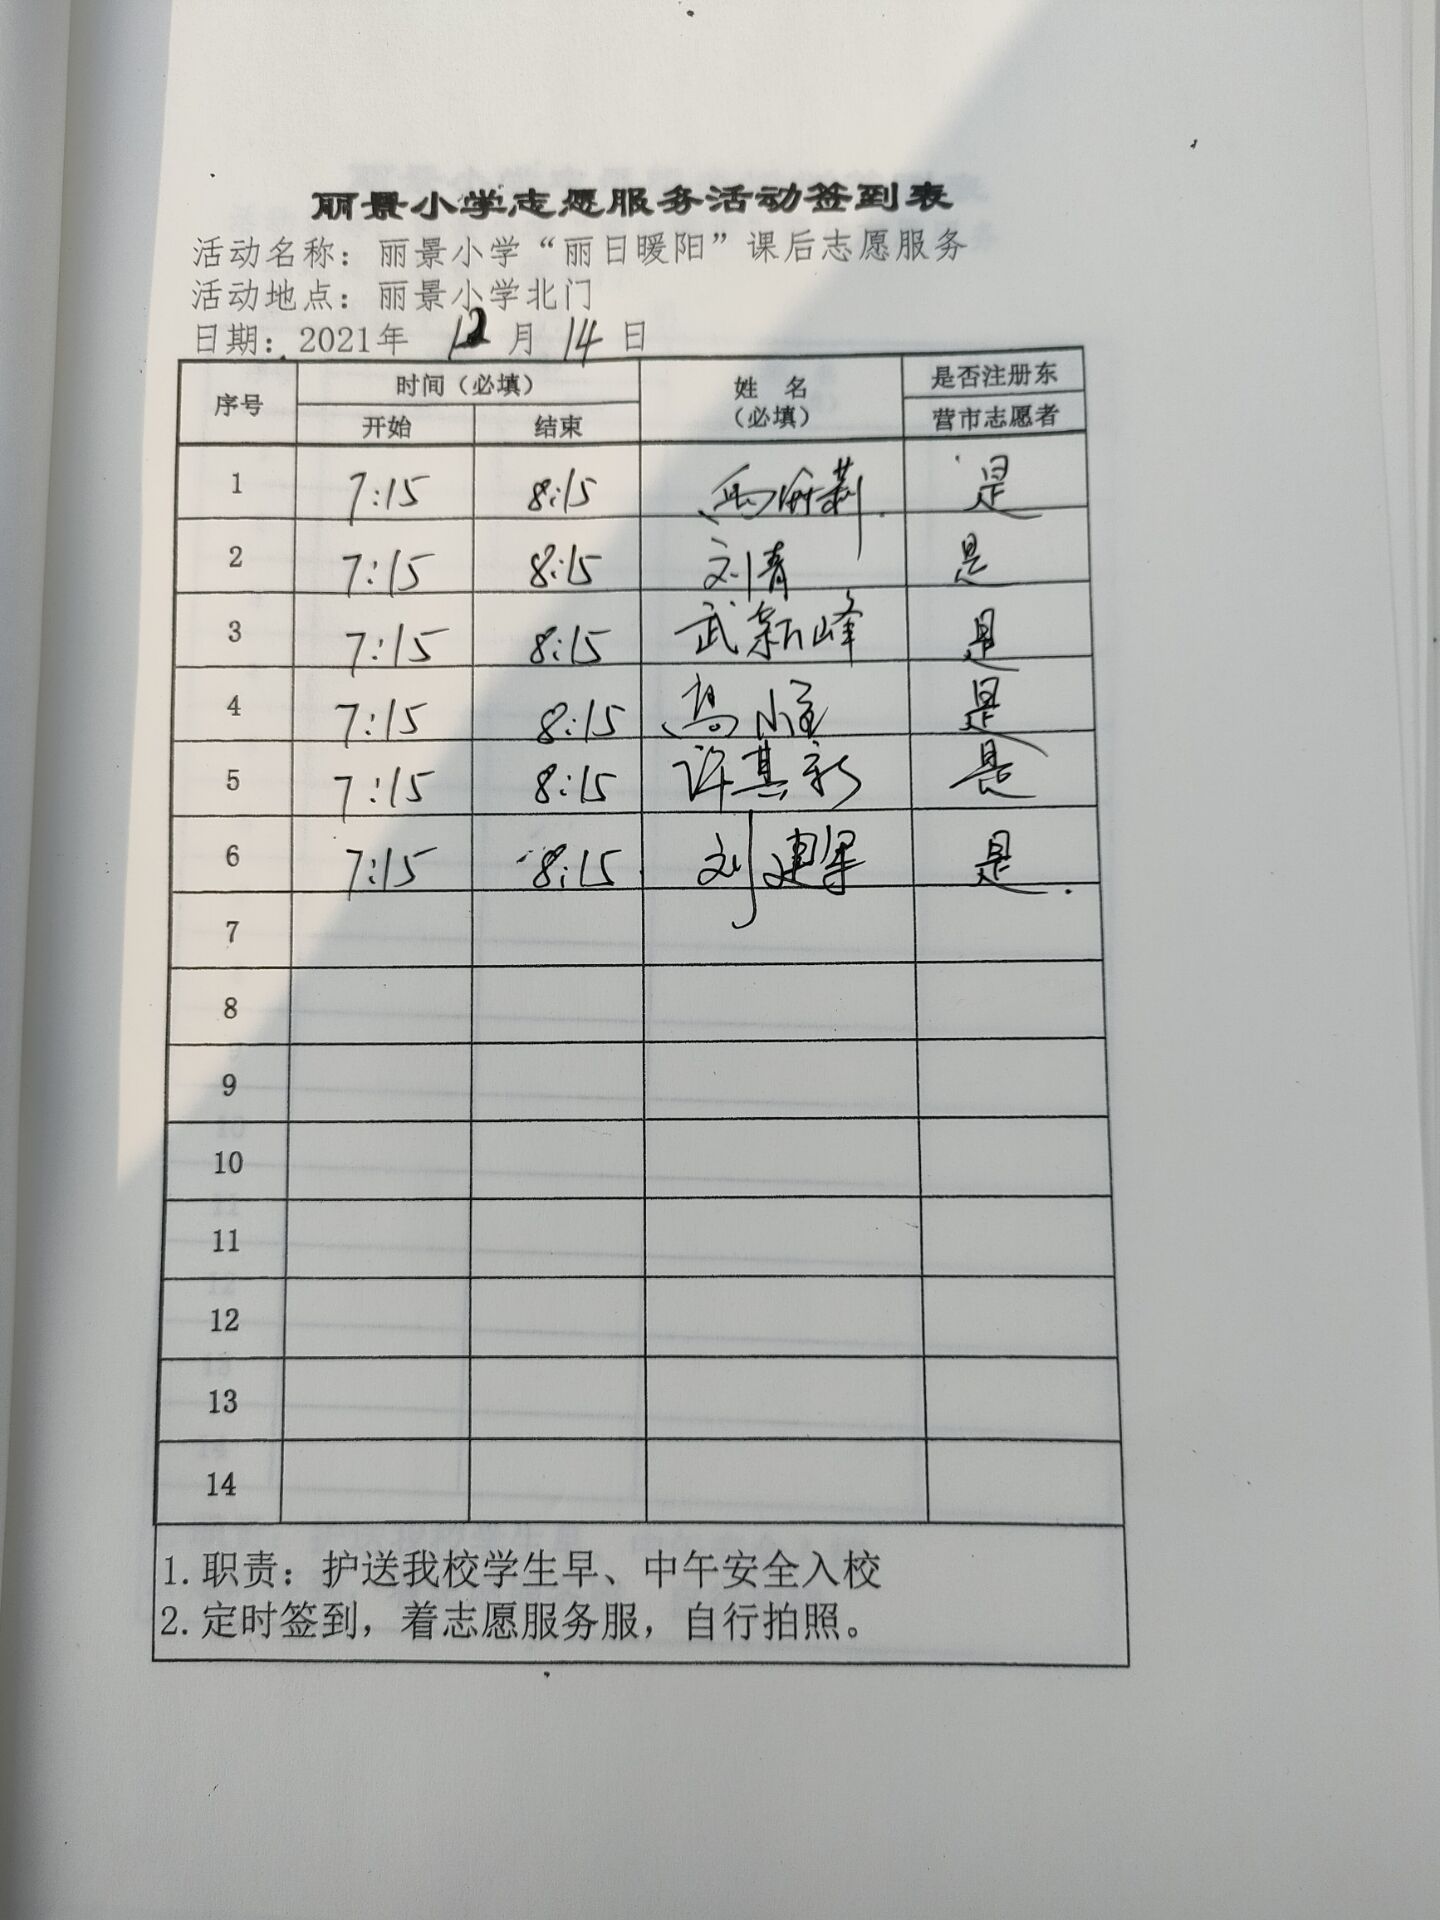 丽景小学志愿服务活动签到表
活动名称：丽景小学“丽日暖阳”课后志愿服务
活动地点：丽景小学北门
日期：2021年 12 月 14 日
序号 时间（必填） 姓 名（必填） 是否注册东营市志愿者
开始 结束
1 7:15 8:15 是
2 7:15 8:15 刘青 是
3 7:15 8:15 武新峰 是
4 7:15 8:15 是
5 7:15 8:15 许其新 是
6 7:15 8:15 刘建 是
7
8
9
10
11
12
13
14
1.职责：护送我校学生早、中午安全入校
2.定时签到，着志愿服务服，自行拍照。